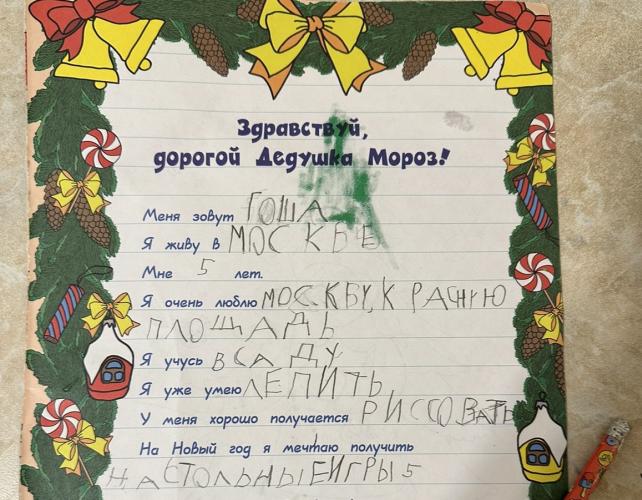 Здравствуй,
дорогой Дедушка Мороз!
Меня зовут ГОША
Я живу в МОСКВЕ
Мне 5 лет.
Я очень люблю МОСКВУ, КРАСНУЮ
ПЛОЩАДЬ
Я учусь В САДУ
Я уже умею ЛЕПИТЬ
У меня хорошо получается РИССОВАТЬ
На Новый год я мечтаю получить
НАСТОЛЬНЫЕ ИГРЫ 5